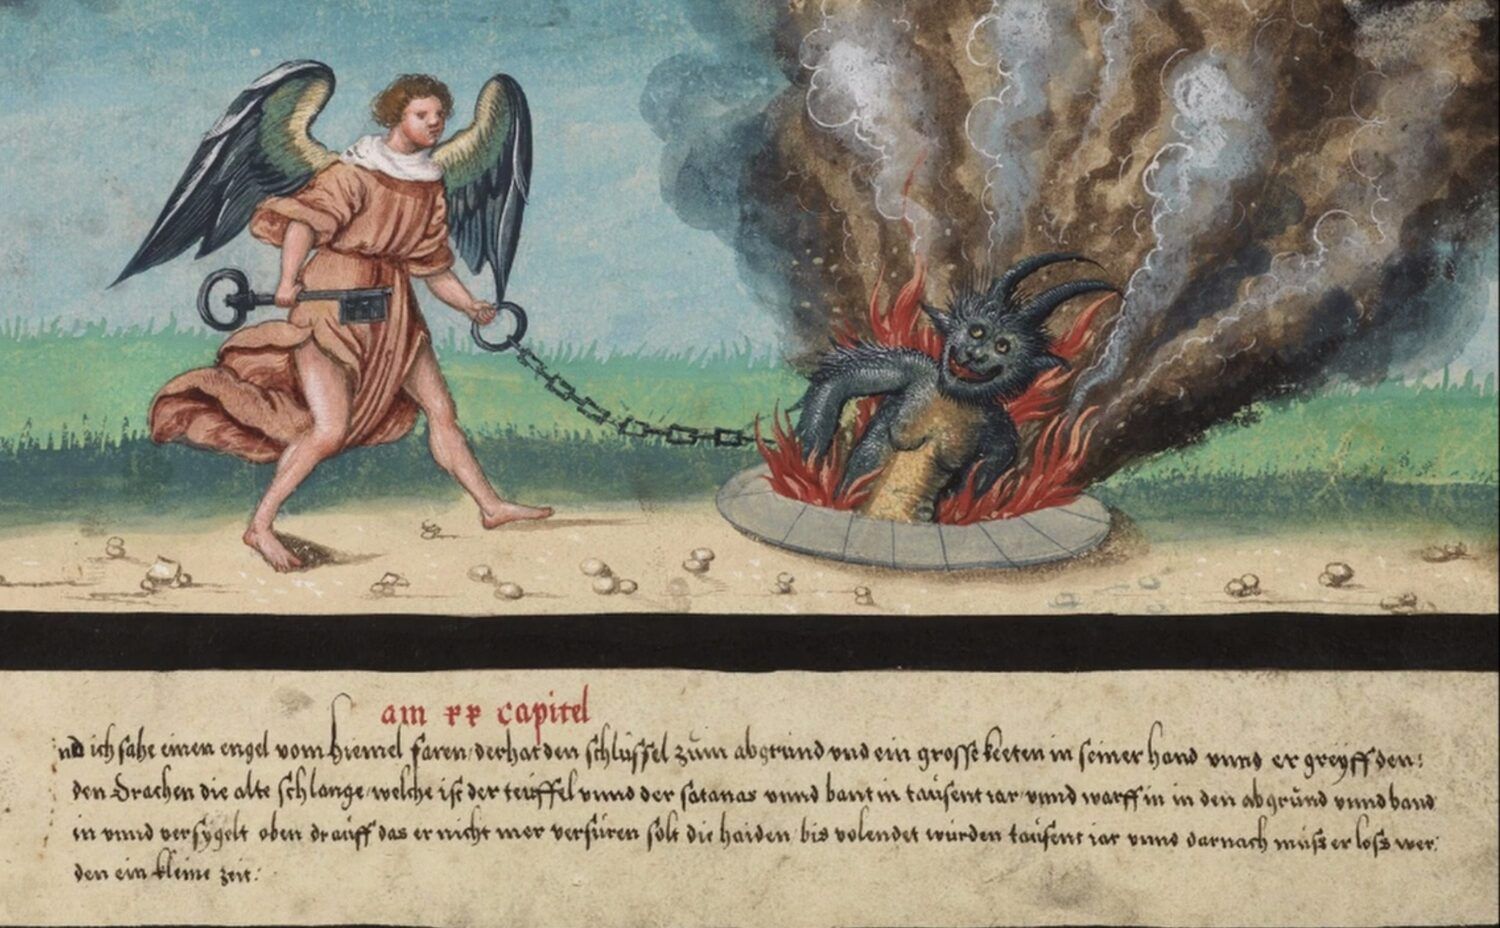 am xx capitel
und ich sahe einen engel vom hiemel faren der hat den schlüssel zum abgrund vnd ein grosse keeten in seiner hand vnnd er greyff den:
den Drachen die alte schlange welche ist der teüffel vnnd der satanas vnnd bant in taüsent iar vnnd warff in in den abgründ vnnd band
in vnnd versygelt oben drauff das er nicht mer verfüren solt die haiden bis volendet würden taüsent iar vnnd darnach müss er loss wer:
den ein kleine zeit: